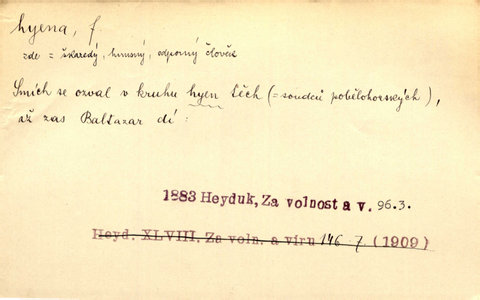 hyena, f.
zde = škaredý, hnusný, odporný člověk
Smích se ozval v kruhu hyen těch (= soudců pobělohorských),
až zas Baltazar dí:
1883 Heyduk, Za volnost a v. 96.3.
Heyd. XLVIII. Za voln. a víru 146 7. (1909)